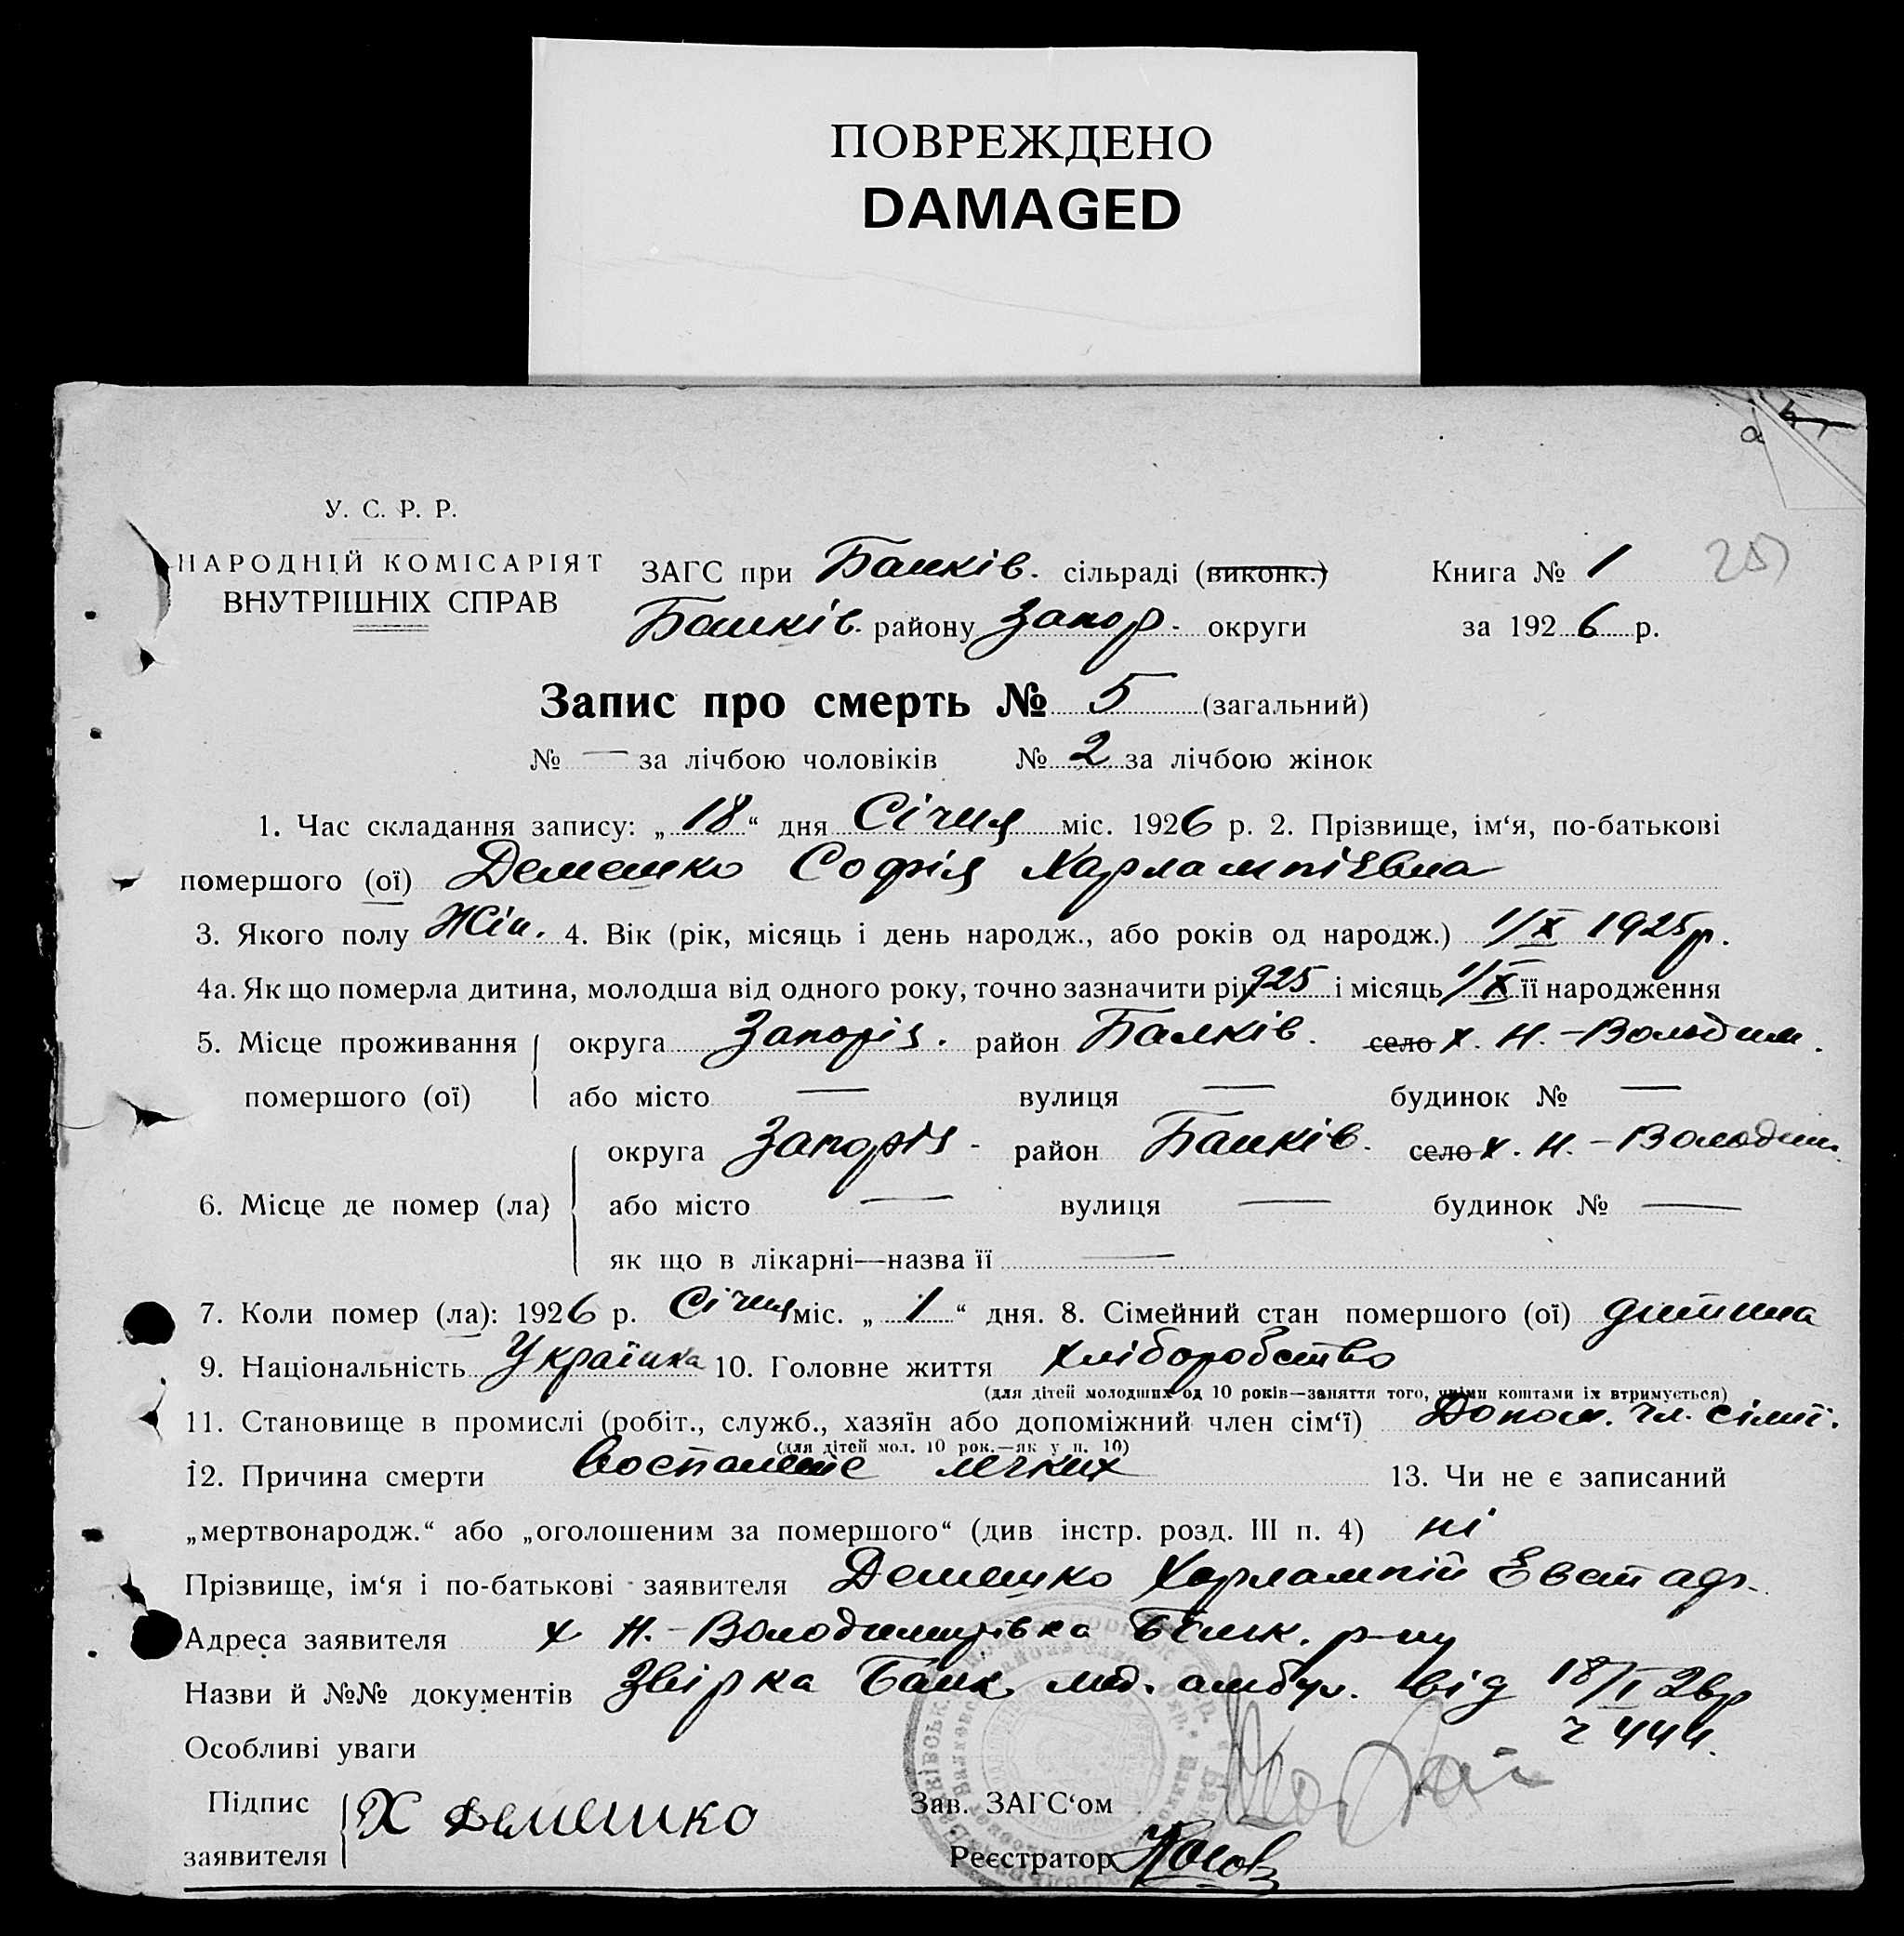 ПОВРЕЖДЕНО
DAMAGED
У. С. Р. Р.
НАРОДНІЙ КОМІСАРІЯТ
ВНУТРІШНІХ СПРАВ
ЗАГС при Балків. сільраді (виконк.)
Книга № 1
251
Балків. району Запор. округи
за 1926 р.
Запис про смерть № 5 (загальний)
№ — за лічбою чоловіків № 2 за лічбою жінок
1. Час складання запису: „18“ дня Січня міс. 1926 р. 2. Прізвище, ім‘я, по-батькові
помершого (ої) Демешко Софія Харлампіївна
3. Якого полу Жін. 4. Вік (рік, місяць і день народж., або років од народж.) 1/X 1925р.
4а. Як що померла дитина, молодша від одного року, точно зазначити рік 925 і місяць 1/X її народження
5. Місце проживання округа Запоріз. район Балків. село х. Н.-Володим.
помершого (ої) або місто — вулиця — будинок № —
округа Запоріз- район Балків. село х. Н.-Володим.
6. Місце де помер (ла) або місто — вулиця — будинок № —
як що в лікарні—назва її —
7. Коли помер (ла): 1926 р. Січня міс. „1“ дня. 8. Сімейний стан помершого (ої) дитина
9. Національність Українка 10. Головне життя хліборобство
(для дітей молодших од 10 років—заняття того, чиїми коштами їх втримується)
11. Становище в промислі (робіт., служб., хазяїн або допоміжний член сім‘ї) Допом. чл. сімї.
(для дітей мол. 10 рок.—як у п. 10)
12. Причина смерти Воспаление легких 13. Чи не є записаний
„мертвонародж.“ або „оголошеним за помершого“ (див інстр. розд. III п. 4) ні
Прізвище, ім‘я і по-батькові заявителя Демешко Харлампій Евстад.
Адреса заявителя х Н.-Володимирівка Балк. р-ну
Назви й №№ документів Звірка Балк. мед. амбул. від 18/I 26р
ч 444.
Особливі уваги
Підпис
заявителя Х Демешко
Зав. ЗАГС‘ом
Реєстратор